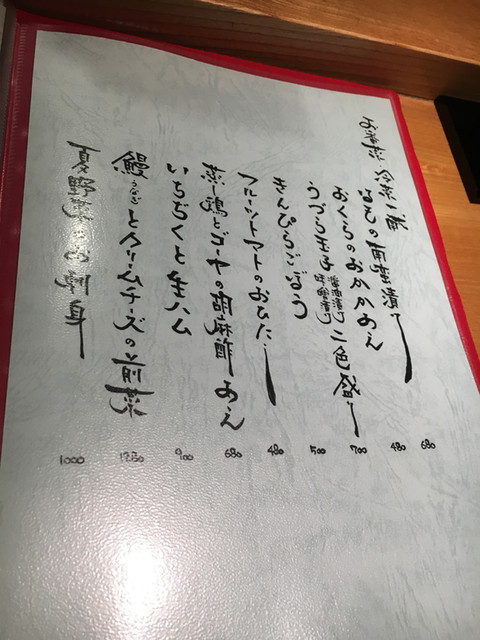 冷菜
なすの南蛮漬け
おくらのおかかあえ
うづら玉子 醤油漬け 味噌漬け 二色盛り
きんぴらごぼう
フルーツトマトのおひたし
蒸し鶏とゴーヤの胡麻酢あえ
いちぢくと生ハム
鰻うなぎとクリームチーズの前菜
夏野菜のお刺身
680
480
700
500
480
680
900
1000